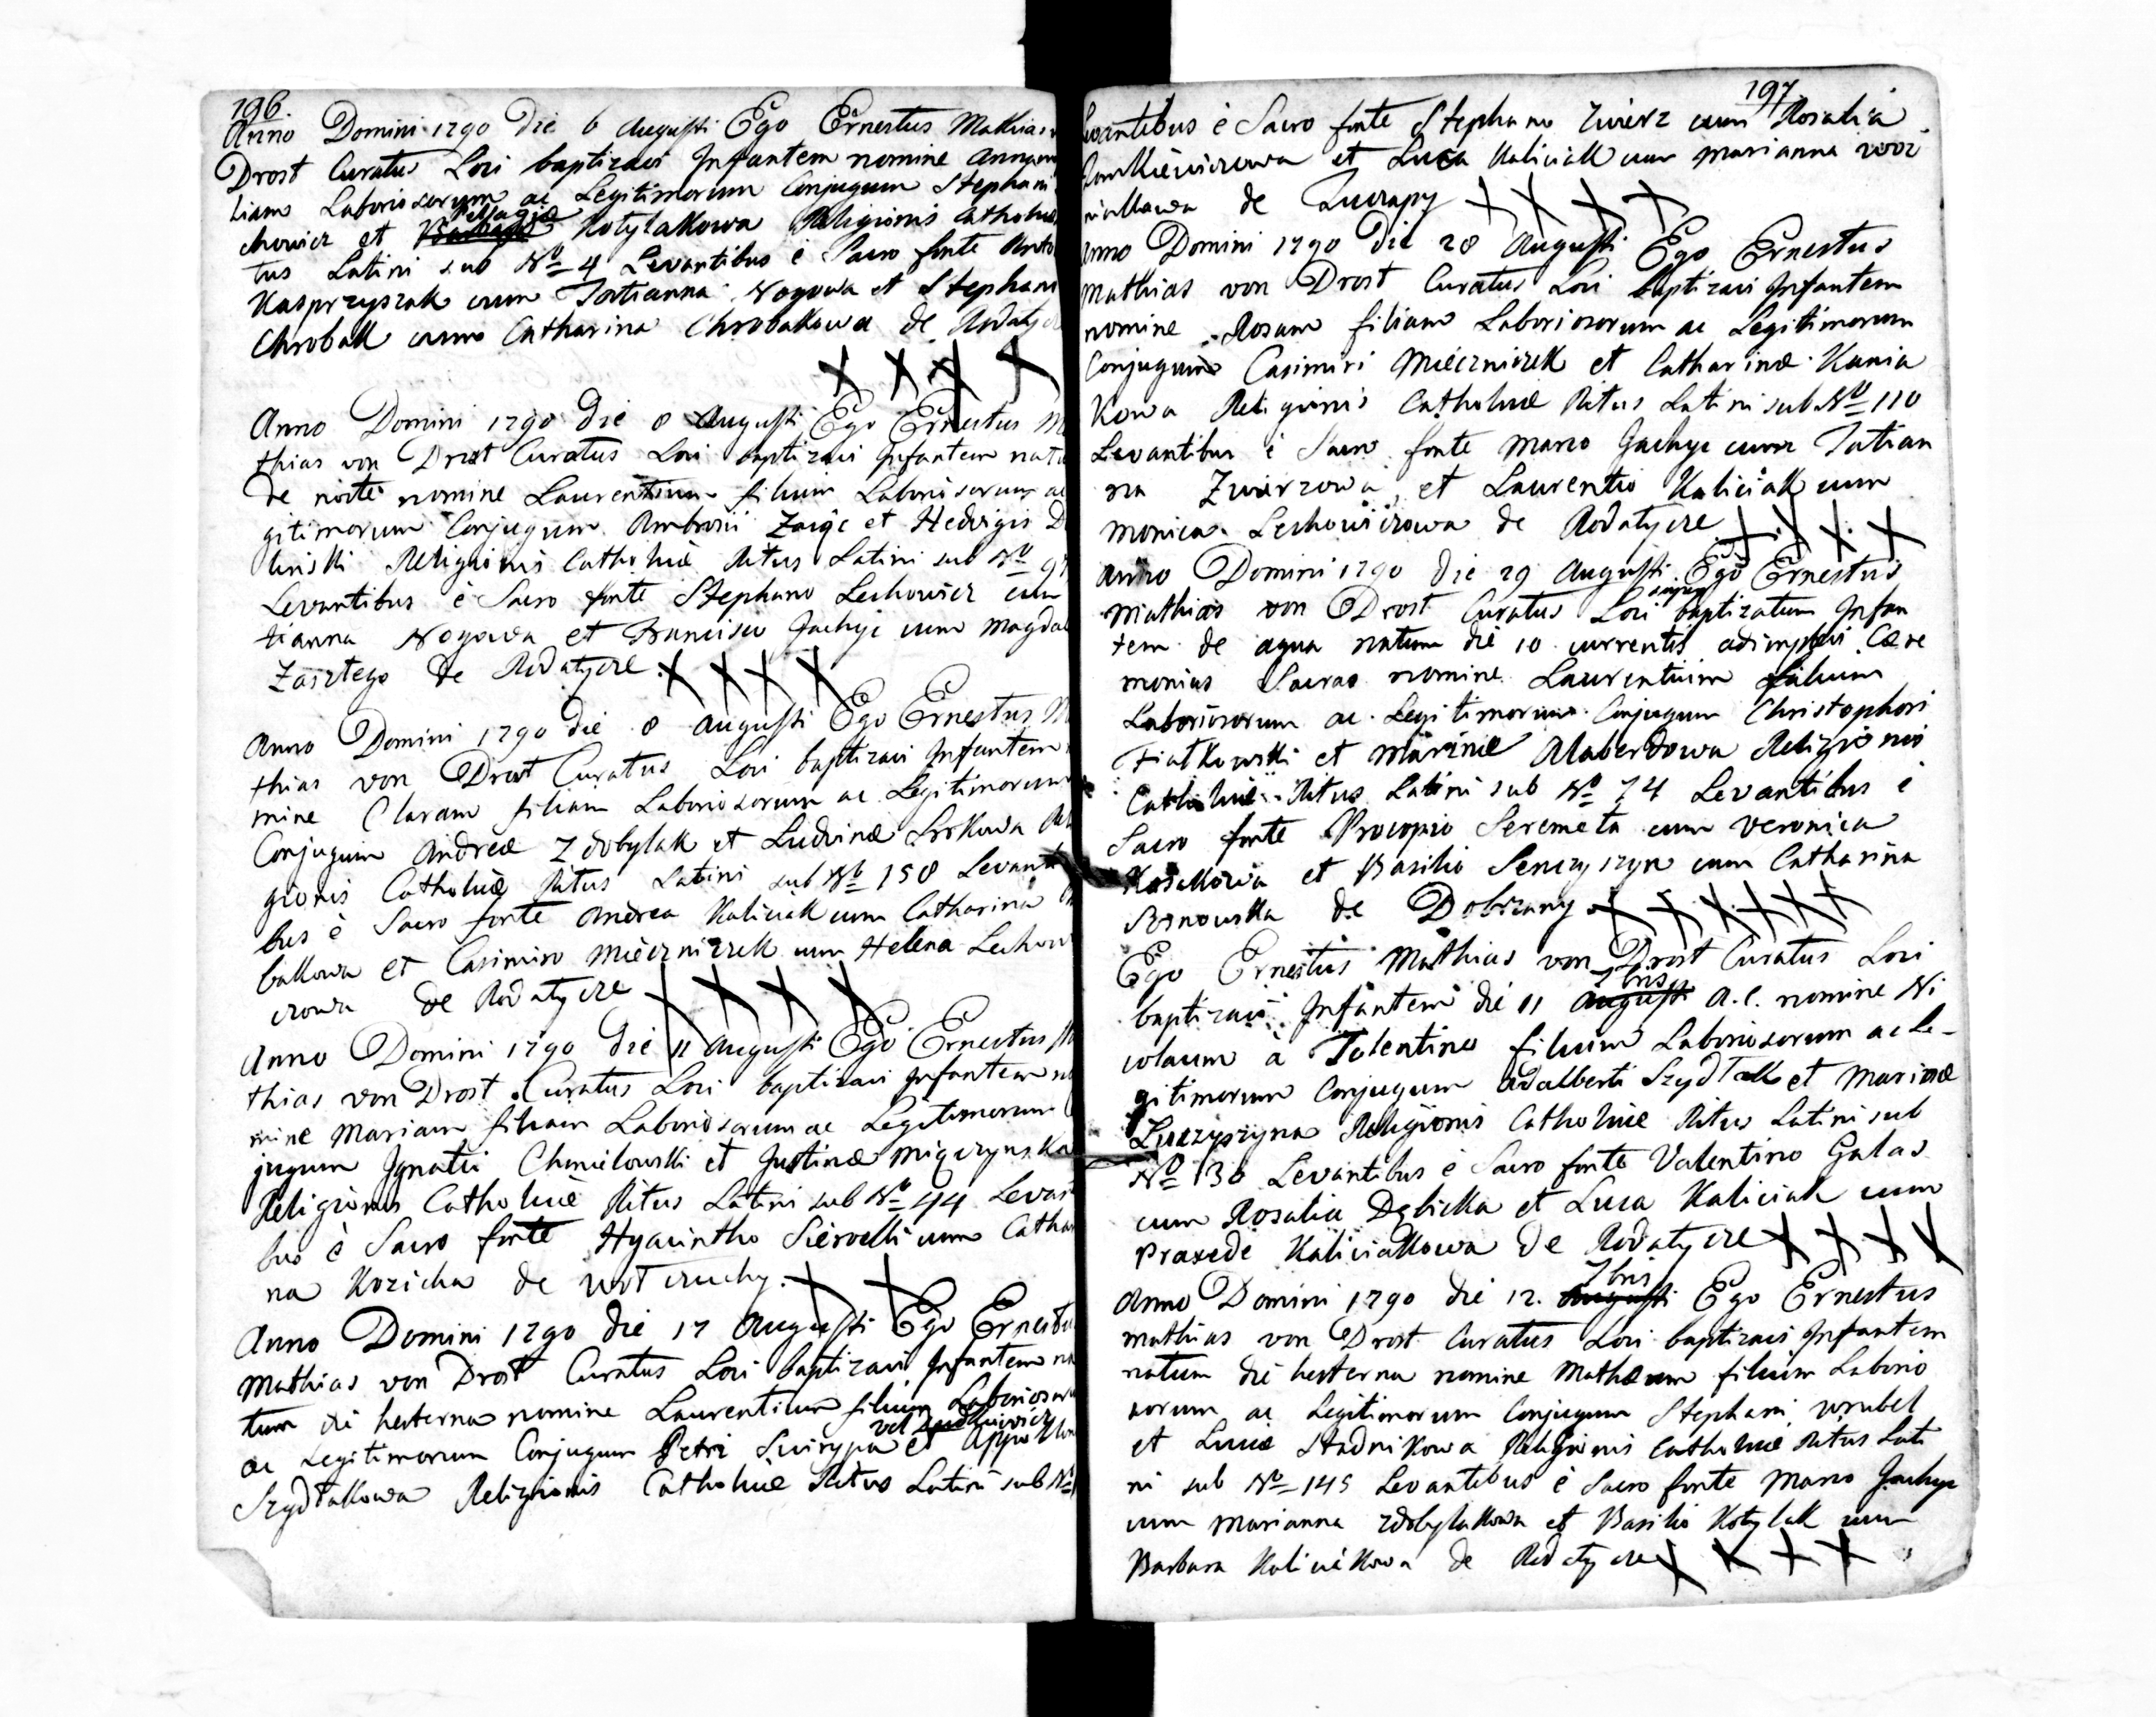 196.
Anno Domini 1790 Die 6 Augusti Ego Ernestus Mathias
Drost Curatus Loci baptizavi Infantem nomine Annam
liam Laboriosorum ac Legitimorum Conjugum Stephani
chowicz et Pelagiæ Kotylakowa Religionis Catholicæ
tus Latini sub No 4 Levantibus è Sacro fonte Anto
Kasprzyszak cum Tatianna Nogowa et Stephano
Chrobak cum Catharina Chrobakowa de Rodatycze
Anno Domini 1790 die 8 Augusti Ego Ernestus M
thias von Drost Curatus Loci baptizavi Infantem natu
de nocte nomine Laurentium filium Laboriosorum ac
gitimorum Conjugum Ambrosii Zając et Hedvigis D
linski Religionis Catholicæ Ritus Latini sub No 97
Levantibus è Sacro fonte Stephano Lechowicz cum
tianna Nogowa et Francisco Jachyc cum Magdal
de Rodatycze
Anno Domini 1790 die 8 Augusti Ego Ernestus M
thias von Drost Curatus Loci baptizavi Infantem
mine Claram filiam Laboriosorum ac Legitimorum
Conjugum Andreæ Zdobylak et Ludvinæ Srokowa Rel
gionis Catholicæ Ritus Latini sub No 158 Levanti
bus è Sacro fonte Andrea Kaliciak cum Catharina
bakowa et Casimiro Mieczniczek cum Helena Lechow
czowa de Rodatycze
Anno Domini 1790 die 11 Augusti Ego Ernestus M
thias von Drost Curatus Loci baptizavi Infantem no
mine Mariam filiam Laboriosorum ac Legitimorum
jugum Ignatii Chmielowski et Justinæ Migczynska
Religionis Catholicæ Ritus Latini sub No 44 Levanti
bus è Sacro fonte Hyacintho cum Catha
na Kozicka de
Anno Domini 1790 die 17 Augusti Ego Ernestu
Mathias von Drost Curatus Loci baptizavi Infantem na
tum die hesterna nomine Laurentium filium Laborioso
ac Legitimorum Conjugum Petri Swirypa vel et
Szydłakowa Religionis Catholicæ Ritus Latini sub No
197
Levantibus è Sacro fonte Stephano Zwierz cum Rosalia
et Luca Kaliciak cum Marianna
de
Anno Domini 1790 die 28 Augusti Ego Ernestus
Mathias von Drost Curatus Loci baptizavi Infantem
nomine Rosam filiam Laboriosorum ac Legitimorum
Conjugum Casimiri Mieczniczek et Catharinæ Kania
kowa Religionis Catholicæ Ritus Latini sub No 110
Levantibus è Sacro fonte Marco Jachyc cum Tatian
na Zwierzowa et Laurentio Kaliciak cum
Monica Lechowiczowa de Rodatycze
Anno Domini 1790 die 29 Augusti Ego Ernestus
Mathias von Drost Curatus Loci super baptizatum Infan
tem de aqua natum die 10 currentis adimplevi Cære
monias Sacras nomine Laurentium filium
Laboriosorum ac Legitimorum Conjugum Christophori
Fiałkowski et Marinæ Alaberdowa Religionis
Catholicæ Ritus Latini sub No 74 Levantibus è
Sacro fonte Procopio Seremeta cum Veronica
Kosakowa et Basilio Senczyszyn cum Catharina
Sosnowska de Dobrzany
Ego Ernestus Mathias von Drost Curatus Loci
baptizavi Infantem die 11 Augusti 7bris a.c. nomine Ni
colaum à Tolentino filium Laboriosorum ac Le-
gitimorum Conjugum Adalberti Szydłak et Marinæ
Religionis Catholicæ Ritus Latini sub
No 130 Levantibus è Sacro fonte Valentino Galas
cum Rosalia Dębicka et Luca Kaliciak cum
Praxede Kaliciakowa de Rodatycze
Anno Domini 1790 die 12. Augusti 7bris Ego Ernestus
Mathias von Drost Curatus Loci baptizavi Infantem
natum die hesterna nomine Mathæum filium Laborio
sorum ac Legitimorum Conjugum Stephani Wrubel
et Luciæ Stadnikowa Religionis Catholicæ Ritus Lati
ni sub No 145 Levantibus è Sacro fonte Marco Jachyc
cum Marianna Zdobylakowa et Basilio Kotylak cum
Barbara Kaliciakowa de Rodatycze